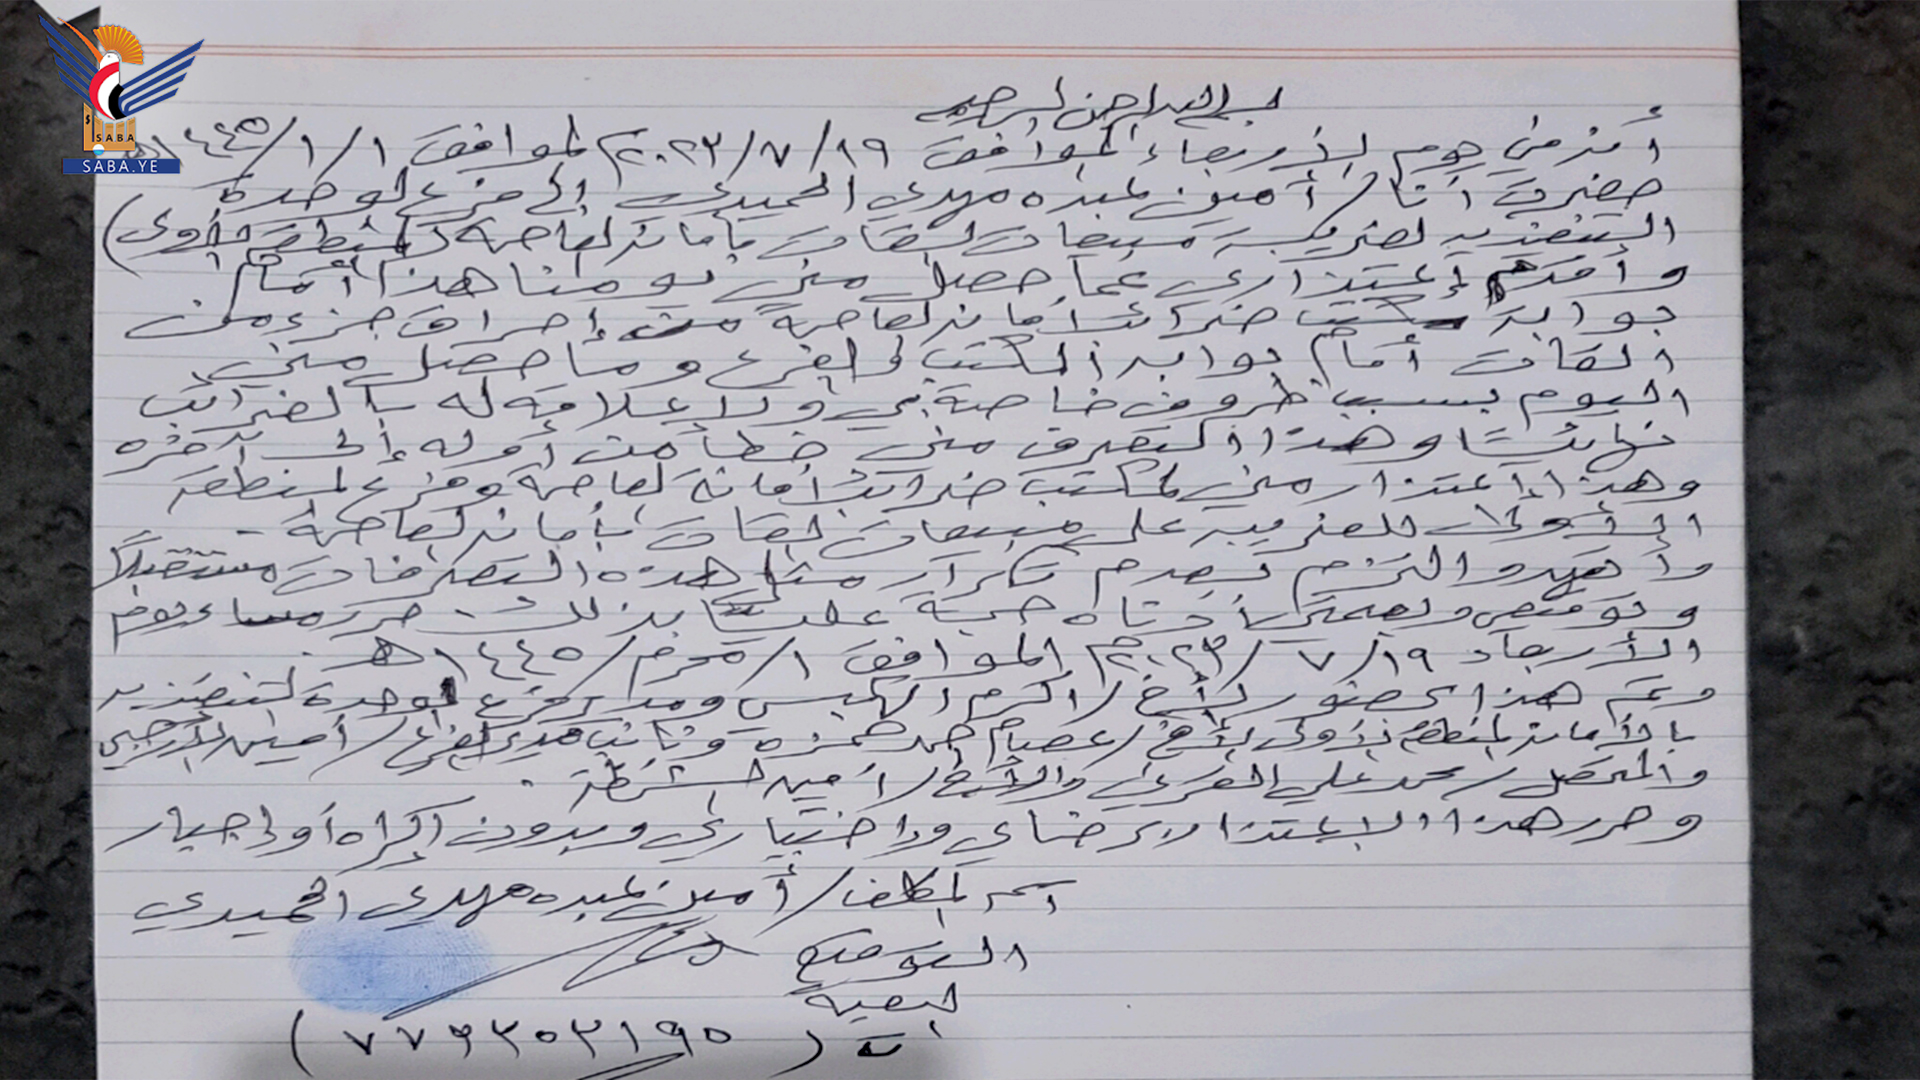 بسم الله الرحمن الرحيم
أنه في يوم الأربعاء الموافق ١٩/٧/٢٠٢٣م الموافق ١/١/١٤٤٥هـ
حضرت أنا/ أمين عبده مهدي الحميدي إلى فرع الوحدة
التنفيذية لضريبة مبيعات القات بأمانة العاصمة (المنطقة الأولى)
وأقدم إعتذاري عما حصل مني يومنا هذا أمام
بوابة مكتب ضرائب أمانة العاصمة من إحراق جزء من
القات أمام بوابة المكتب في الفرع وما حصل مني
اليوم بسبب ظروف خاصة بي ولا علاقة له بالضرائب
نهائيا وهذا التصرف مني خطأ من أوله إلى آخره
وهذا إعتذار مني لمكتب ضرائب أمانة العاصمة وفرع المنطقة
الأولى للضريبة على مبيعات القات بأمانة العاصمة -
وأتعهد والتزم بعدم تكرار مثل هذه التصرفات مستقبلاً
وتوقيعي وبصمتي أدناه حجة علينا بذلك حرر مساء يوم
الأربعاء ١٩/٧/٢٠٢٣م الموافق ١/محرم/١٤٤٥هـ.
وتم هذا بحضور الأخ/ أكرم ومدير فرع الوحدة التنفيذية
بالأمانة المنطقة الأولى الأخ/ عصام حمزه ونائب مدير الفرع/ أمين
والمحصل/ محمد علي والأخ/ أمين الشرطة.
وحرر هذا الاعتذار برضاي واختياري وبدون إكراه أو إجبار
اسم المكلف/ أمين عبده مهدي الحميدي
التوقيع
البصمة
ت (٧٧٩٢٥٢١٩٥)
SABA
SABA.YE